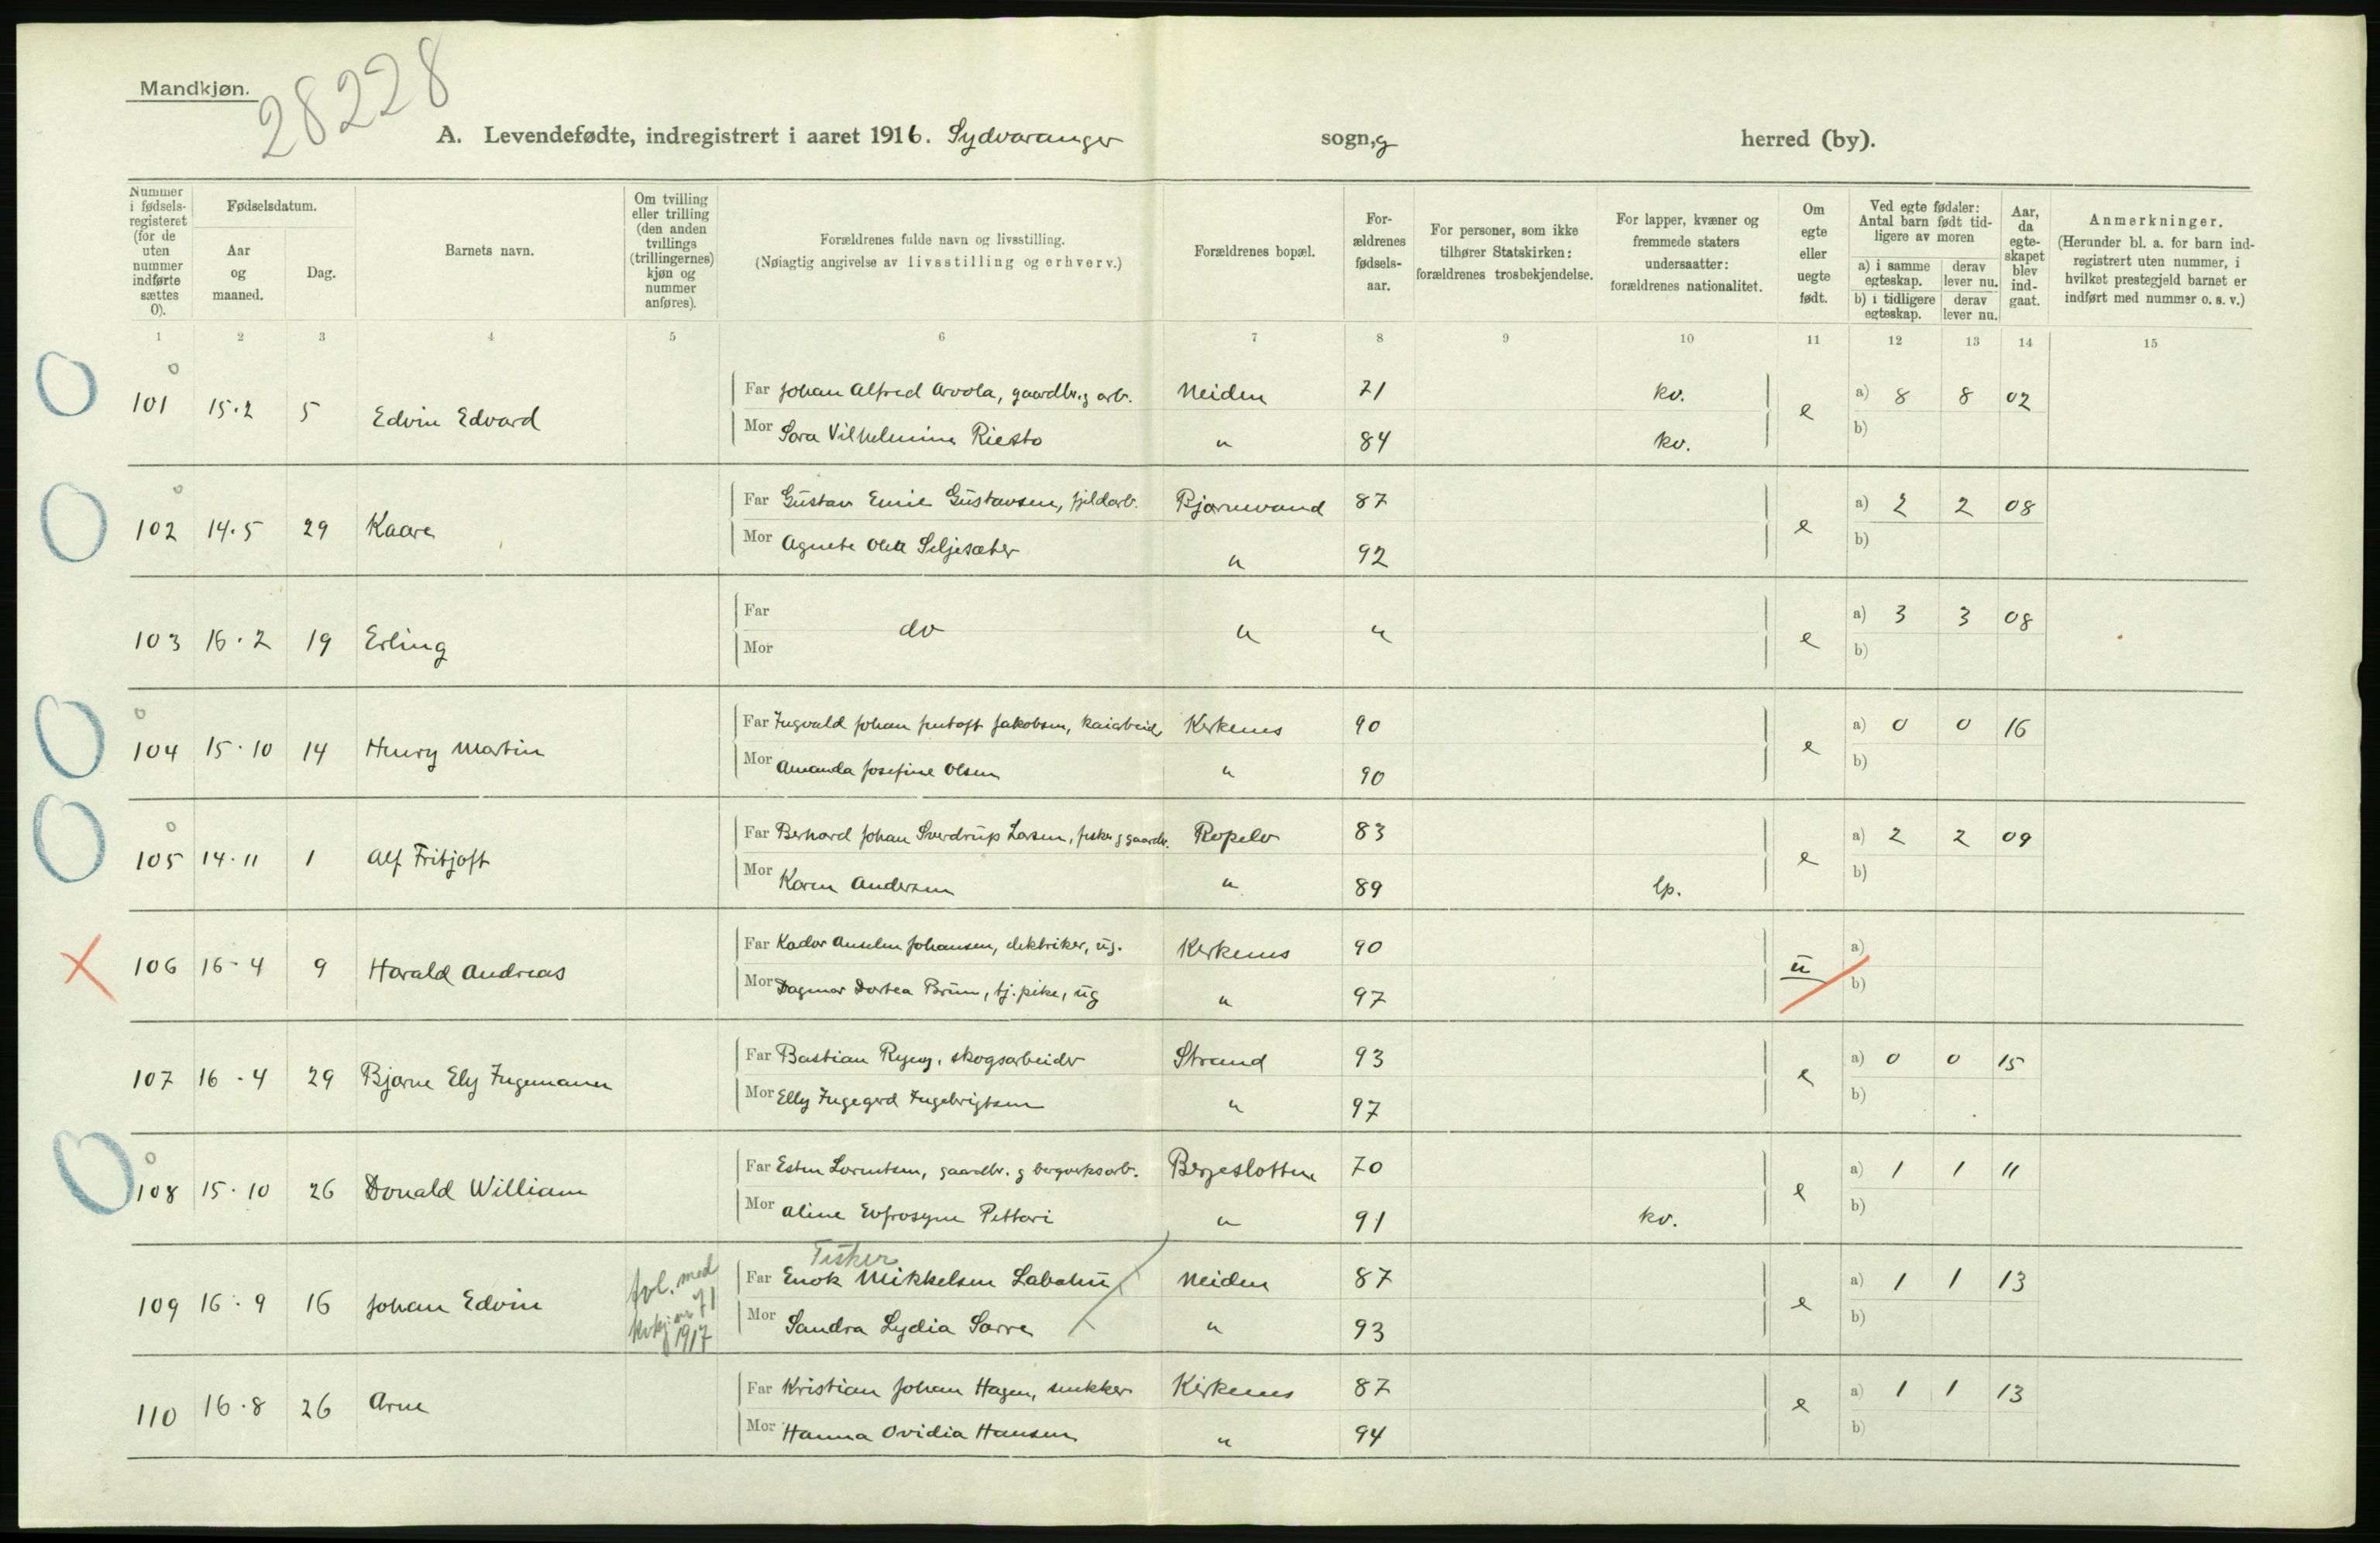 Mandkjøn.
28228
A. Levendefødte, indregistrert i aaret 1916. Sydvaranger sogn, g herred (by).
Nummer i fødsels-registeret (for de uten nummer indførte sættes 0).
Fødselsdatum.
Aar og maaned.
Dag.
Barnets navn.
Om tvilling eller trilling (den anden tvillings (trillingernes) kjøn og nummer anføres).
Forældrenes fulde navn og livsstilling.
(Nøiagtig angivelse av livsstilling og erhverv.)
Forældrenes bopæl.
For-ældrenes fødsels-aar.
For personer, som ikke tilhører Statskirken: forældrenes trosbekjendelse.
For lapper, kvæner og fremmede staters undersaatter: forældrenes nationalitet.
Om egte eller uegte født.
Ved egte fødsler: Antal barn født tid-ligere av moren
a) i samme egteskap. derav lever nu.
b) i tidligere egteskap. derav lever nu.
Aar, da egte-skapet blev ind-gaat.
Anmerkninger.
(Herunder bl. a. for barn ind-registrert uten nummer, i hvilket prestegjeld barnet er indført med nummer o. s. v.)
1 2 3 4 5 6 7 8 9 10 11 12 13 14 15
0
101 15.2 5 Edvin Edvard Far Johan Alfred Arvola, gaardbr. g arb. Neiden 71 kv. e a) 8 8 02
Mor Sara Vilhelmine Riesto " 84 kv. b)
0
102 14.5 29 Kaare Far Gustav Emil Gustavsen, fjeldarb. Bjørnevand 87 e a) 2 2 08
Mor Agnete Olea Seljesæter " 92 b)
103 16.2 19 Erling Far do " " e a) 3 3 08
Mor b)
0
104 15.10 14 Henry Martin Far Ingvald Johan Jentoft Jakobsen, kaiarbeid. Kirkenes 90 e a) 0 0 16
Mor Amanda Josefine Olsen " 90 b)
0
105 14.11 1 Alf Fritjoft Far Bernhard Johan Sverdrup Larsen, fisker g gaardbr. Ropelv 83 e a) 2 2 09
Mor Karen Andersen " 89 lp. b)
106 16.4 9 Harald Andreas Far Kador Anselm Johansen, elektriker, ug. Kirkenes 90 u a)
Mor Dagmar Dortea Brun, tj. pike, ug " 97 b)
107 16.4 29 Bjarne Ely Ingemann Far Bastian Ryeng, skogsarbeider Strand 93 e a) 0 0 15
Mor Elly Ingegerd Ingebrigtsen " 97 b)
0
108 15.10 26 Donald William Far Esten Lorentsen, gaardbr. g bergverksarb. Bergeslotten 70 e a) 1 1 11
Mor Aline Evfrosyne Pettari " 91 kv. b)
Fisker
109 16.9 16 Johan Edvin tvl. med kvkj. nr 71 1917 Far Enok Mikkelsen Labahu Neiden 87 e a) 1 1 13
Mor Sandra Lydia Sarre " 93 b)
110 16.8 26 Arne Far Kristian Johan Hagen, snekker Kirkenes 87 e a) 1 1 13
Mor Hanna Ovidia Hansen " 94 b)